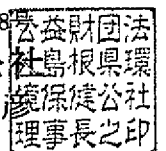 8
公益財団法
社島根県環
境保健公社
理事長之印
彦